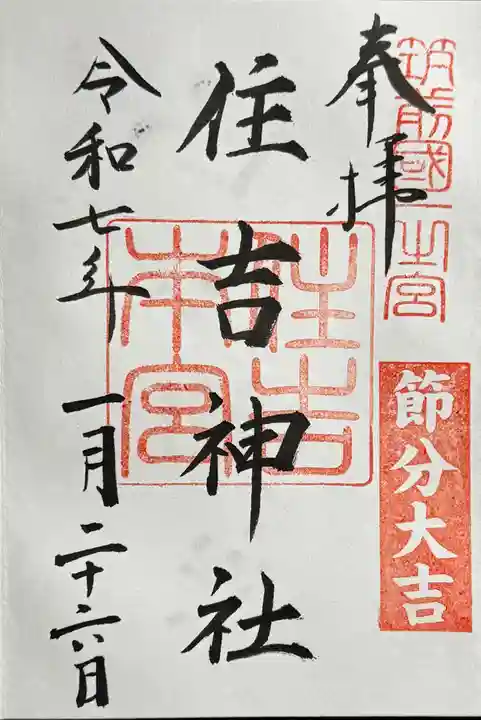 筑前國一之宮
奉拝
節分大吉
住吉神社
住吉本宮
令和七年一月二十六日